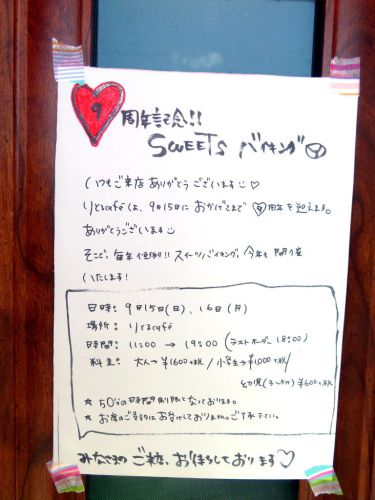 9周年記念!!
SWEETS バイキング
いつもご来店ありがとうございます♡
りとるcaféは、9月15日におかげさまで 9周年を迎えます。
ありがとうございます
そこで、毎年恒例!! スイーツバイキング、今年も開催
いたします!
日時: 9月15日(日)、16日(月)
場所: りとるcafé
時間: 11:00 → 19:00 (ラストオーダー 18:00)
料金: 大人 ¥1600+税 / 小学生 ¥1000+税 /
幼児(3~6才) ¥600+税
★ 50分の時間制限となっております。
★ お席のご予約はお受けしておりません。ご了承下さい。
みなさまのご来店、お待ちしております♡